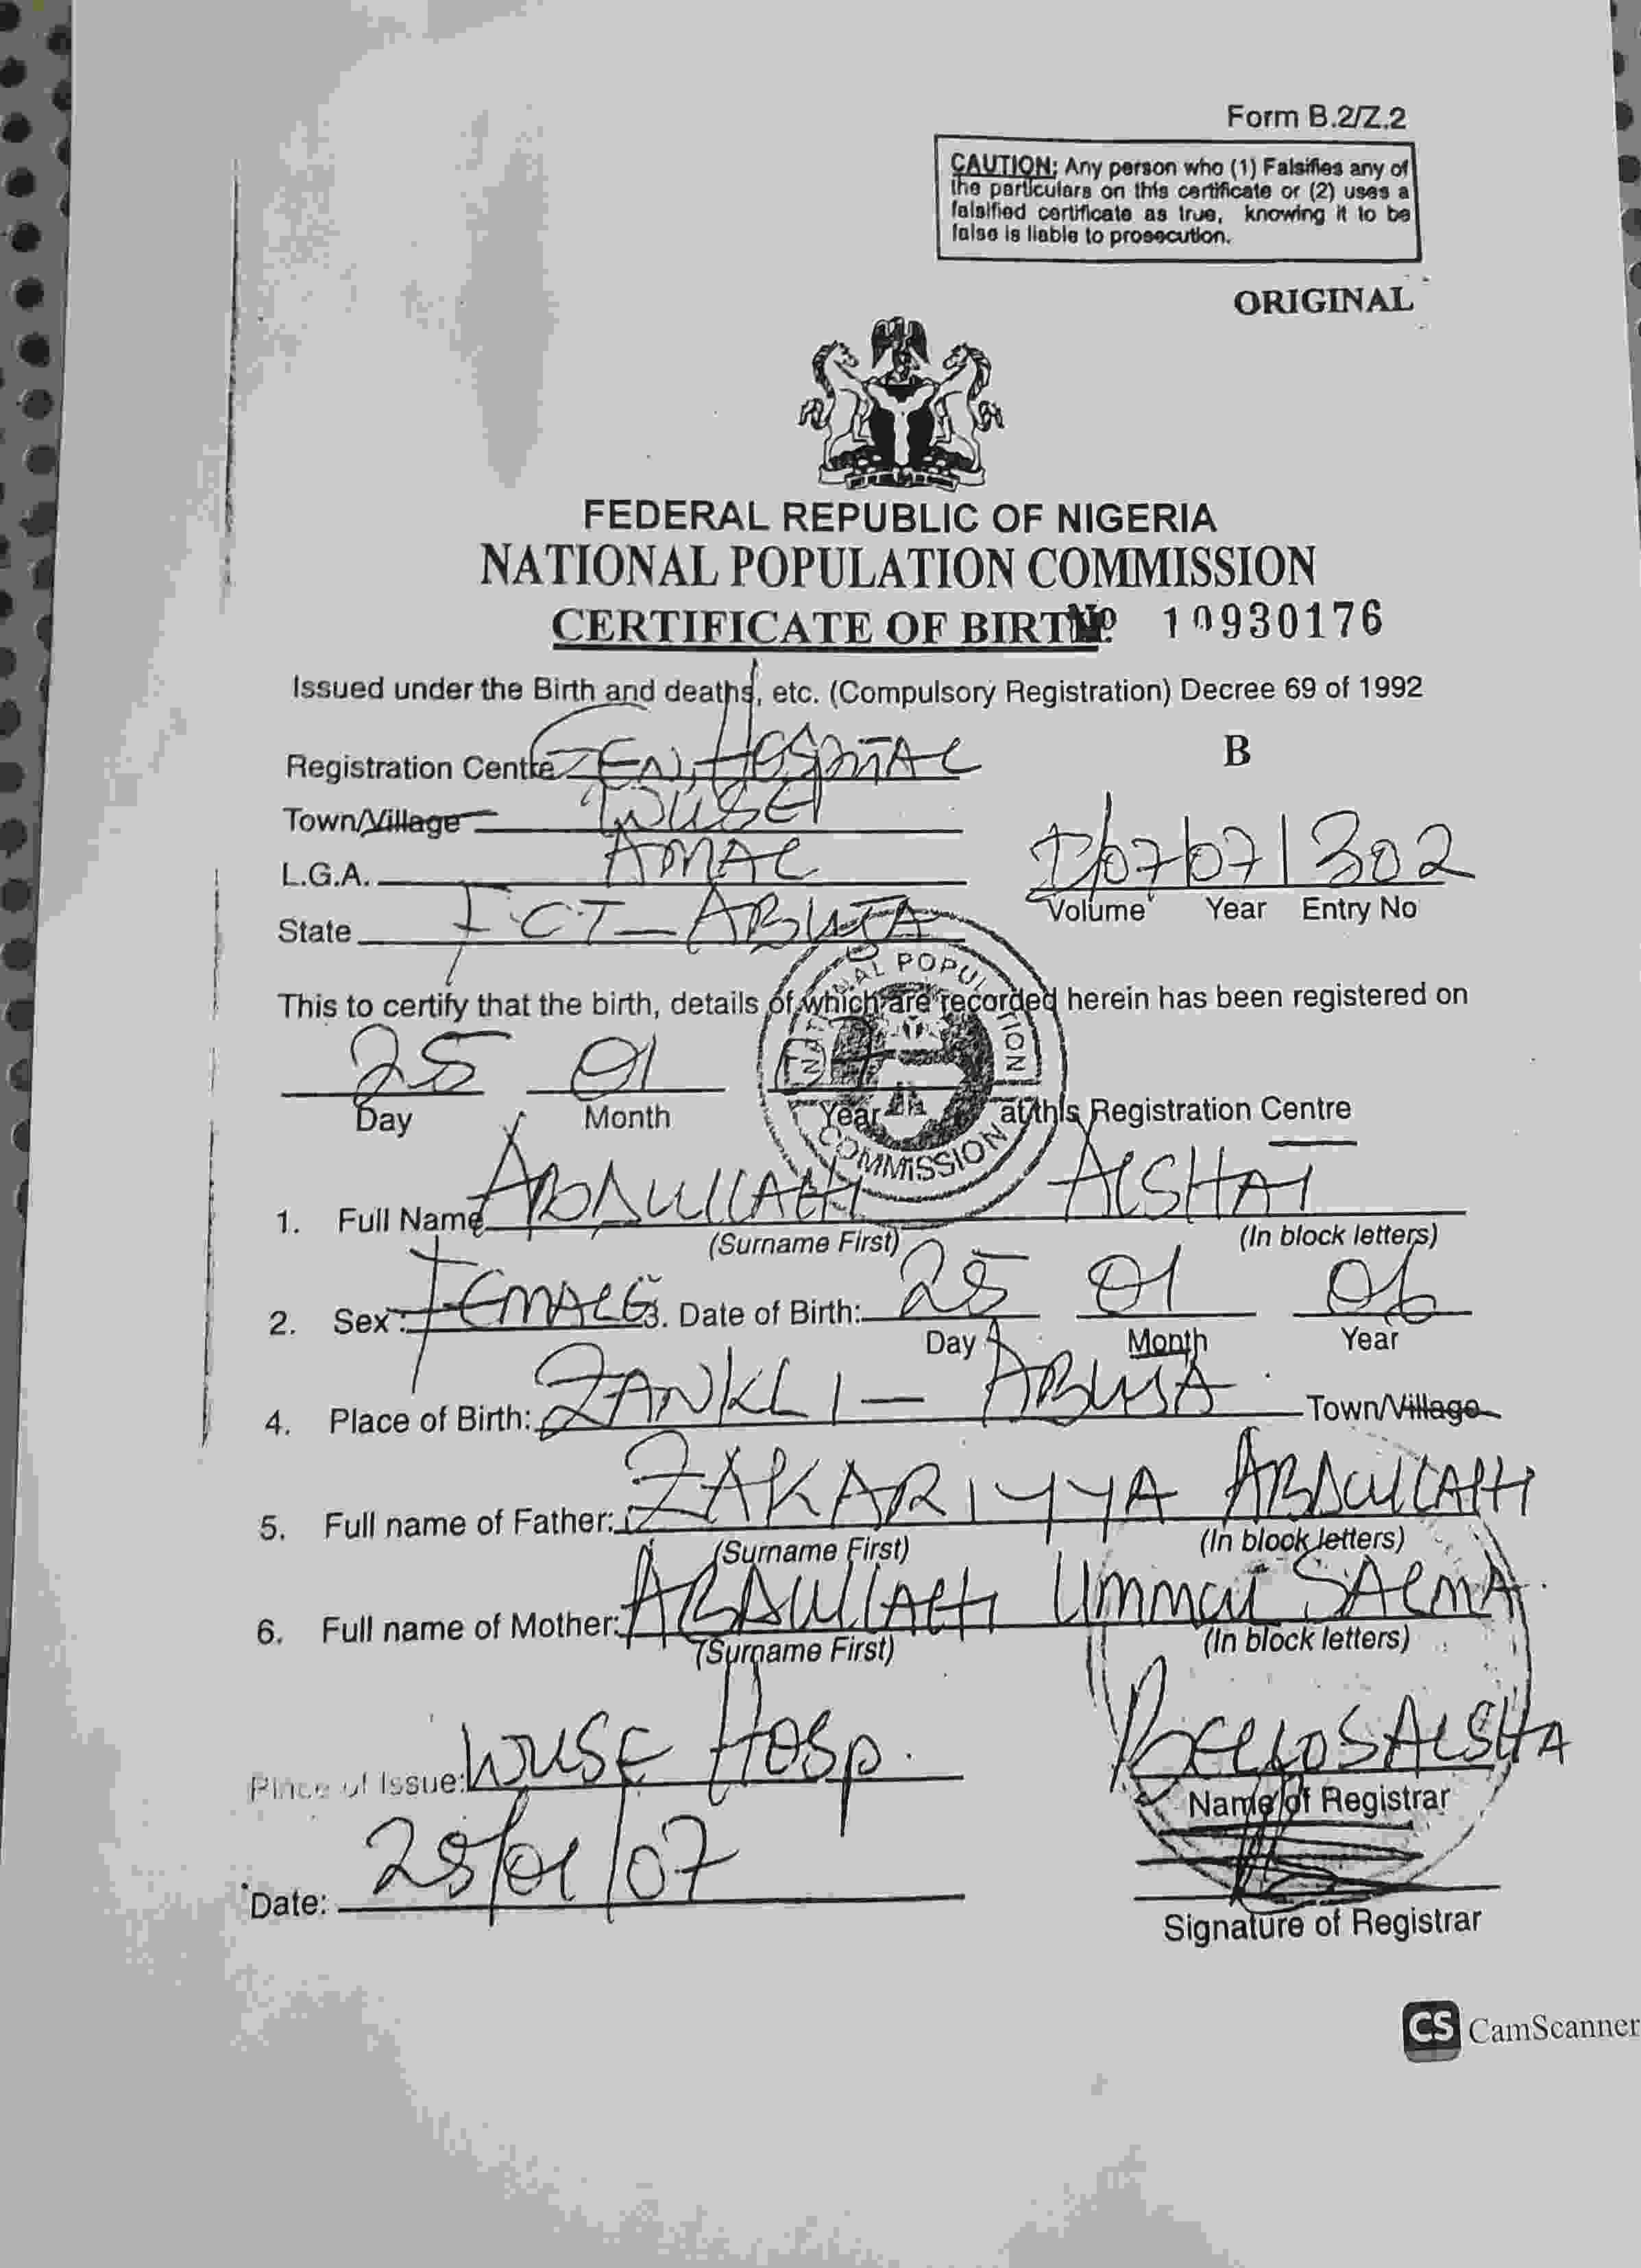 Form B.2/Z.2
CAUTION: Any person who (1) Falsifies any of
the particulars on this certificate or (2) uses a
falsified certificate as true, knowing it to be
false is liable to prosecution.
ORIGINAL
FEDERAL REPUBLIC OF NIGERIA
NATIONAL POPULATION COMMISSION
CERTIFICATE OF BIRTH No 10930176
Issued under the Birth and deaths, etc. (Compulsory Registration) Decree 69 of 1992
Registration Centre GEN. HOSPITAL B
Town/Village WUSE
L.G.A. AMAC 07/07/302
Volume Year Entry No
State FCT - ABUJA
NATIONAL POPULATION COMMISSION
This to certify that the birth, details of which are recorded herein has been registered on
25 01 07
Day Month Year at this Registration Centre
1. Full Name ABDULLAHI AISHAT
(Surname First) (In block letters)
2. Sex: FEMALE 3. Date of Birth: 25 01 06
Day Month Year
4. Place of Birth: ZANKLI - ABUJA Town/Village
5. Full name of Father: ZAKARIYYA ABDULLAHI
(Surname First) (In block letters)
6. Full name of Mother: ABDULLAHI UMMUI SALMA
(Surname First) (In block letters)
Place of Issue: WUSE HOSP. BELLO S AISHA
Name of Registrar
Date: 25/01/07
Signature of Registrar
CS CamScanner